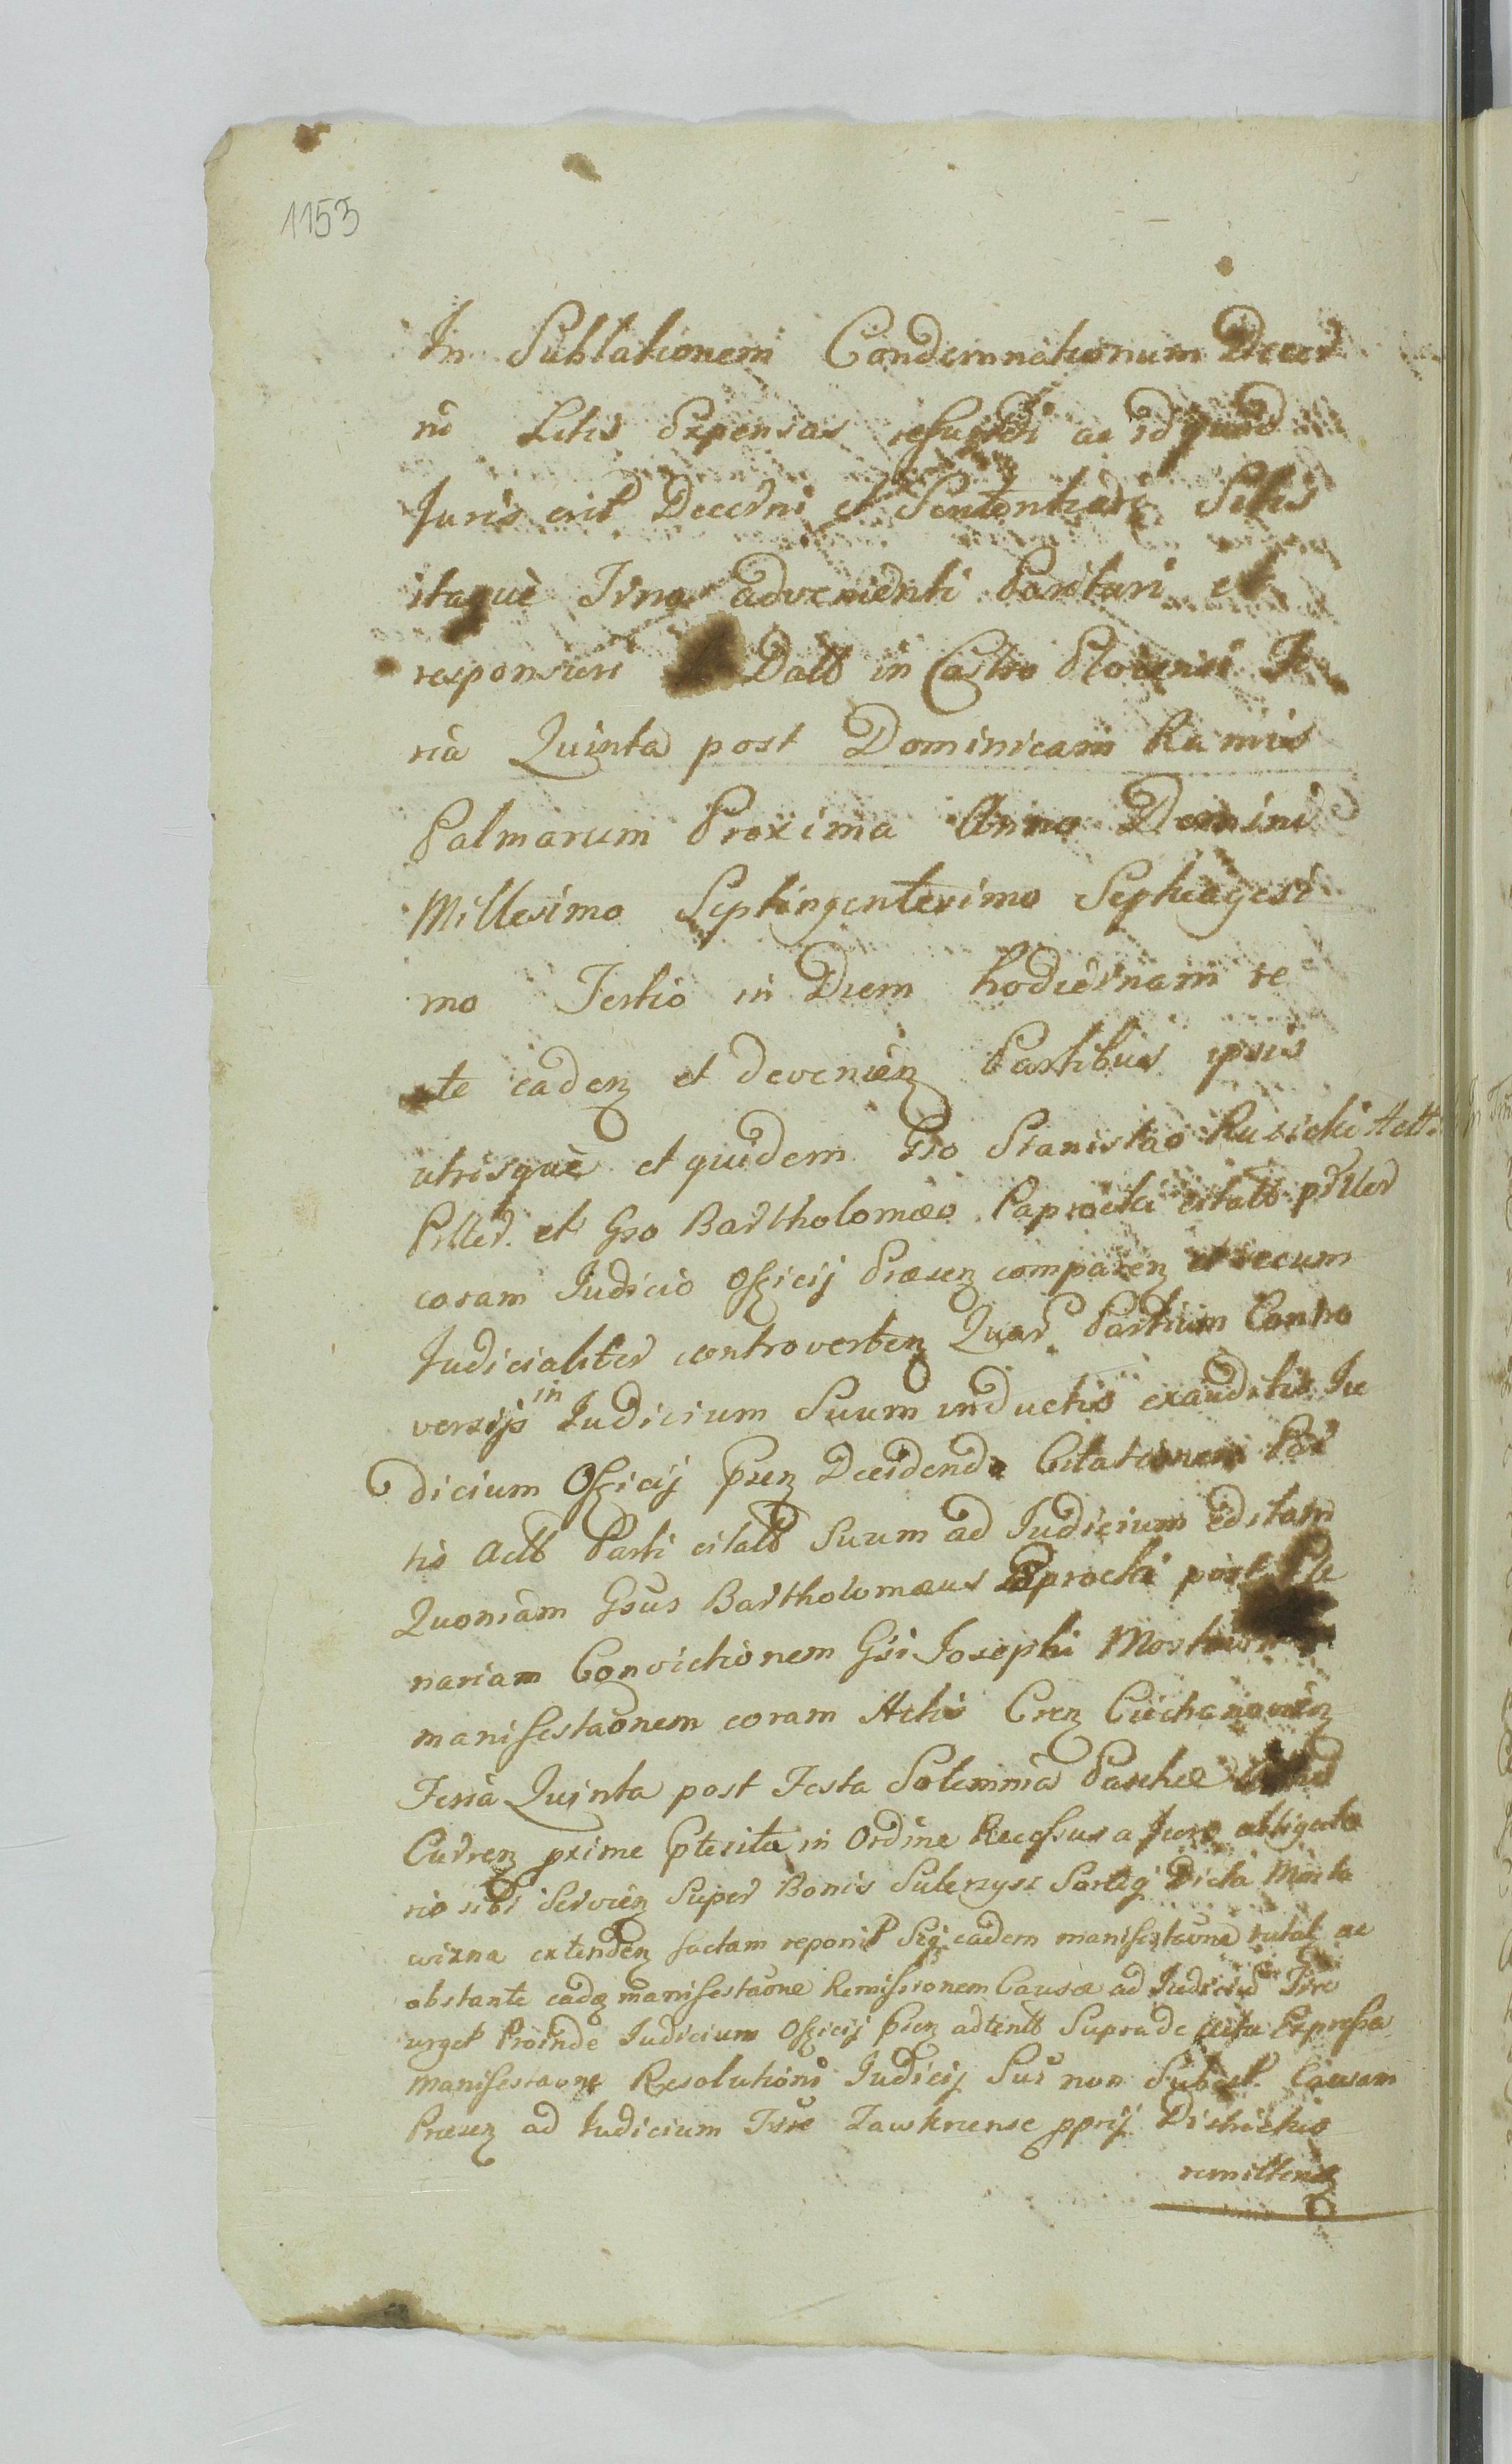 1153
In Sublationem Condemnationum Decer
ni Litis Expensas refundi ac id quod
Juris erit Decerni et Sententiari Sitis
itaque Trno advenienti Paritari et
responsuri Datt in Castro Plocensi Fe
ria Quinta post Dominicam Ramis
Palmarum Proxima Anno Domini
Millesimo Septingentesimo Septuagesi
mo Tertio in Diem hodiernam re
cte caden et devenien Partibus ipsis
utrisque et quidem Gso Stanislao Rusicki Actt
Prller et Gso Bartholomæo Paprocki citatt prller
coram Judicio Officij Præsen comparen et secum
Judicialiter controverten Quar Partium Contro
versijs in Judicium Suum inductis exauditis Ju
dicium Officij Præn Decidendo Citationem Par
tis Actt Parti citatt Suum ad Judicium editam
Quoniam Gsus Bartholomæus Paprocki post Ple
nariam Convictionem Gsi Josephi
manifestaonem coram Actis Cren Ciechanovien
Feria Quinta post Festa Solennia Paschæ
Curren prime pterita in Ordine Recessus a Jure obligato
rio sibi Servien Super Bonis Sulerzysz Sorteq Dicta Mosta
wizna extenden factam reponit Seq eadem manifestaone tutat ac
obstante eadq manifestaone Remissionem Causæ ad Judiciu Trre
urget Proinde Judicium Officij Præn adtentt Suprade Expressa
manifestaone Resolutioni Judicij Sui non Subest Causam
Præsen ad Judicium Trre Zawkrense pprij Districtus
remitten